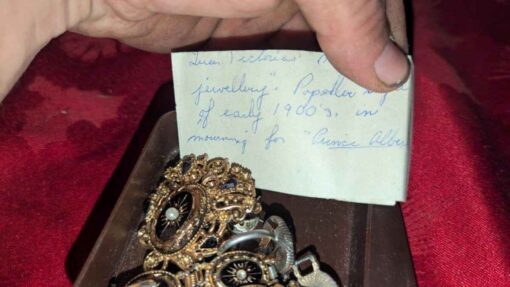 Queen Victorias'
jewellery". Popular style
of early 1900's. in
mourning for "Prince Albe